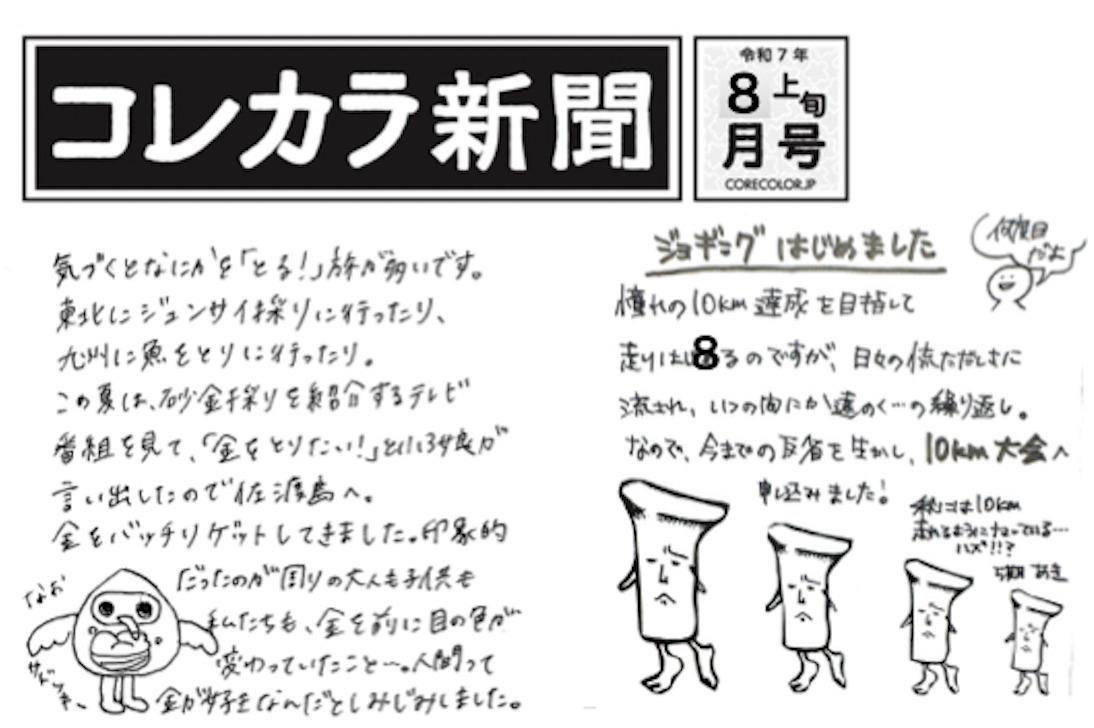 コレカラ新聞
令和7年
8上旬
月号
CORECOLOR.JP
気づくとなにかを「とる!」旅が多いです。
東北にジュンサイ採りに行ったり、
九州に魚をとりに行ったり。
この夏は、砂金採りを紹介するテレビ
番組を見て、「金をとりたい!」と小3娘が
言い出したので佐渡島へ。
金をバッチリゲットしてきました。印象的
だったのが周りの大人も子供も
私たちも、金を前に目の色が
変わっていたこと…。人間って
金が好きなんだとしみじみしました。
なお
ジョギングはじめました
何度目
だよ
憧れの10km達成を目指して
走りはじ8るのですが、日々の慌ただしさに
流され、いつの間にか遠のく…の繰り返し。
なので、今までの反省を生かし、10km大会へ
申し込みました!
秋には10km
走れるようになっている…
ハズ!!?
あき